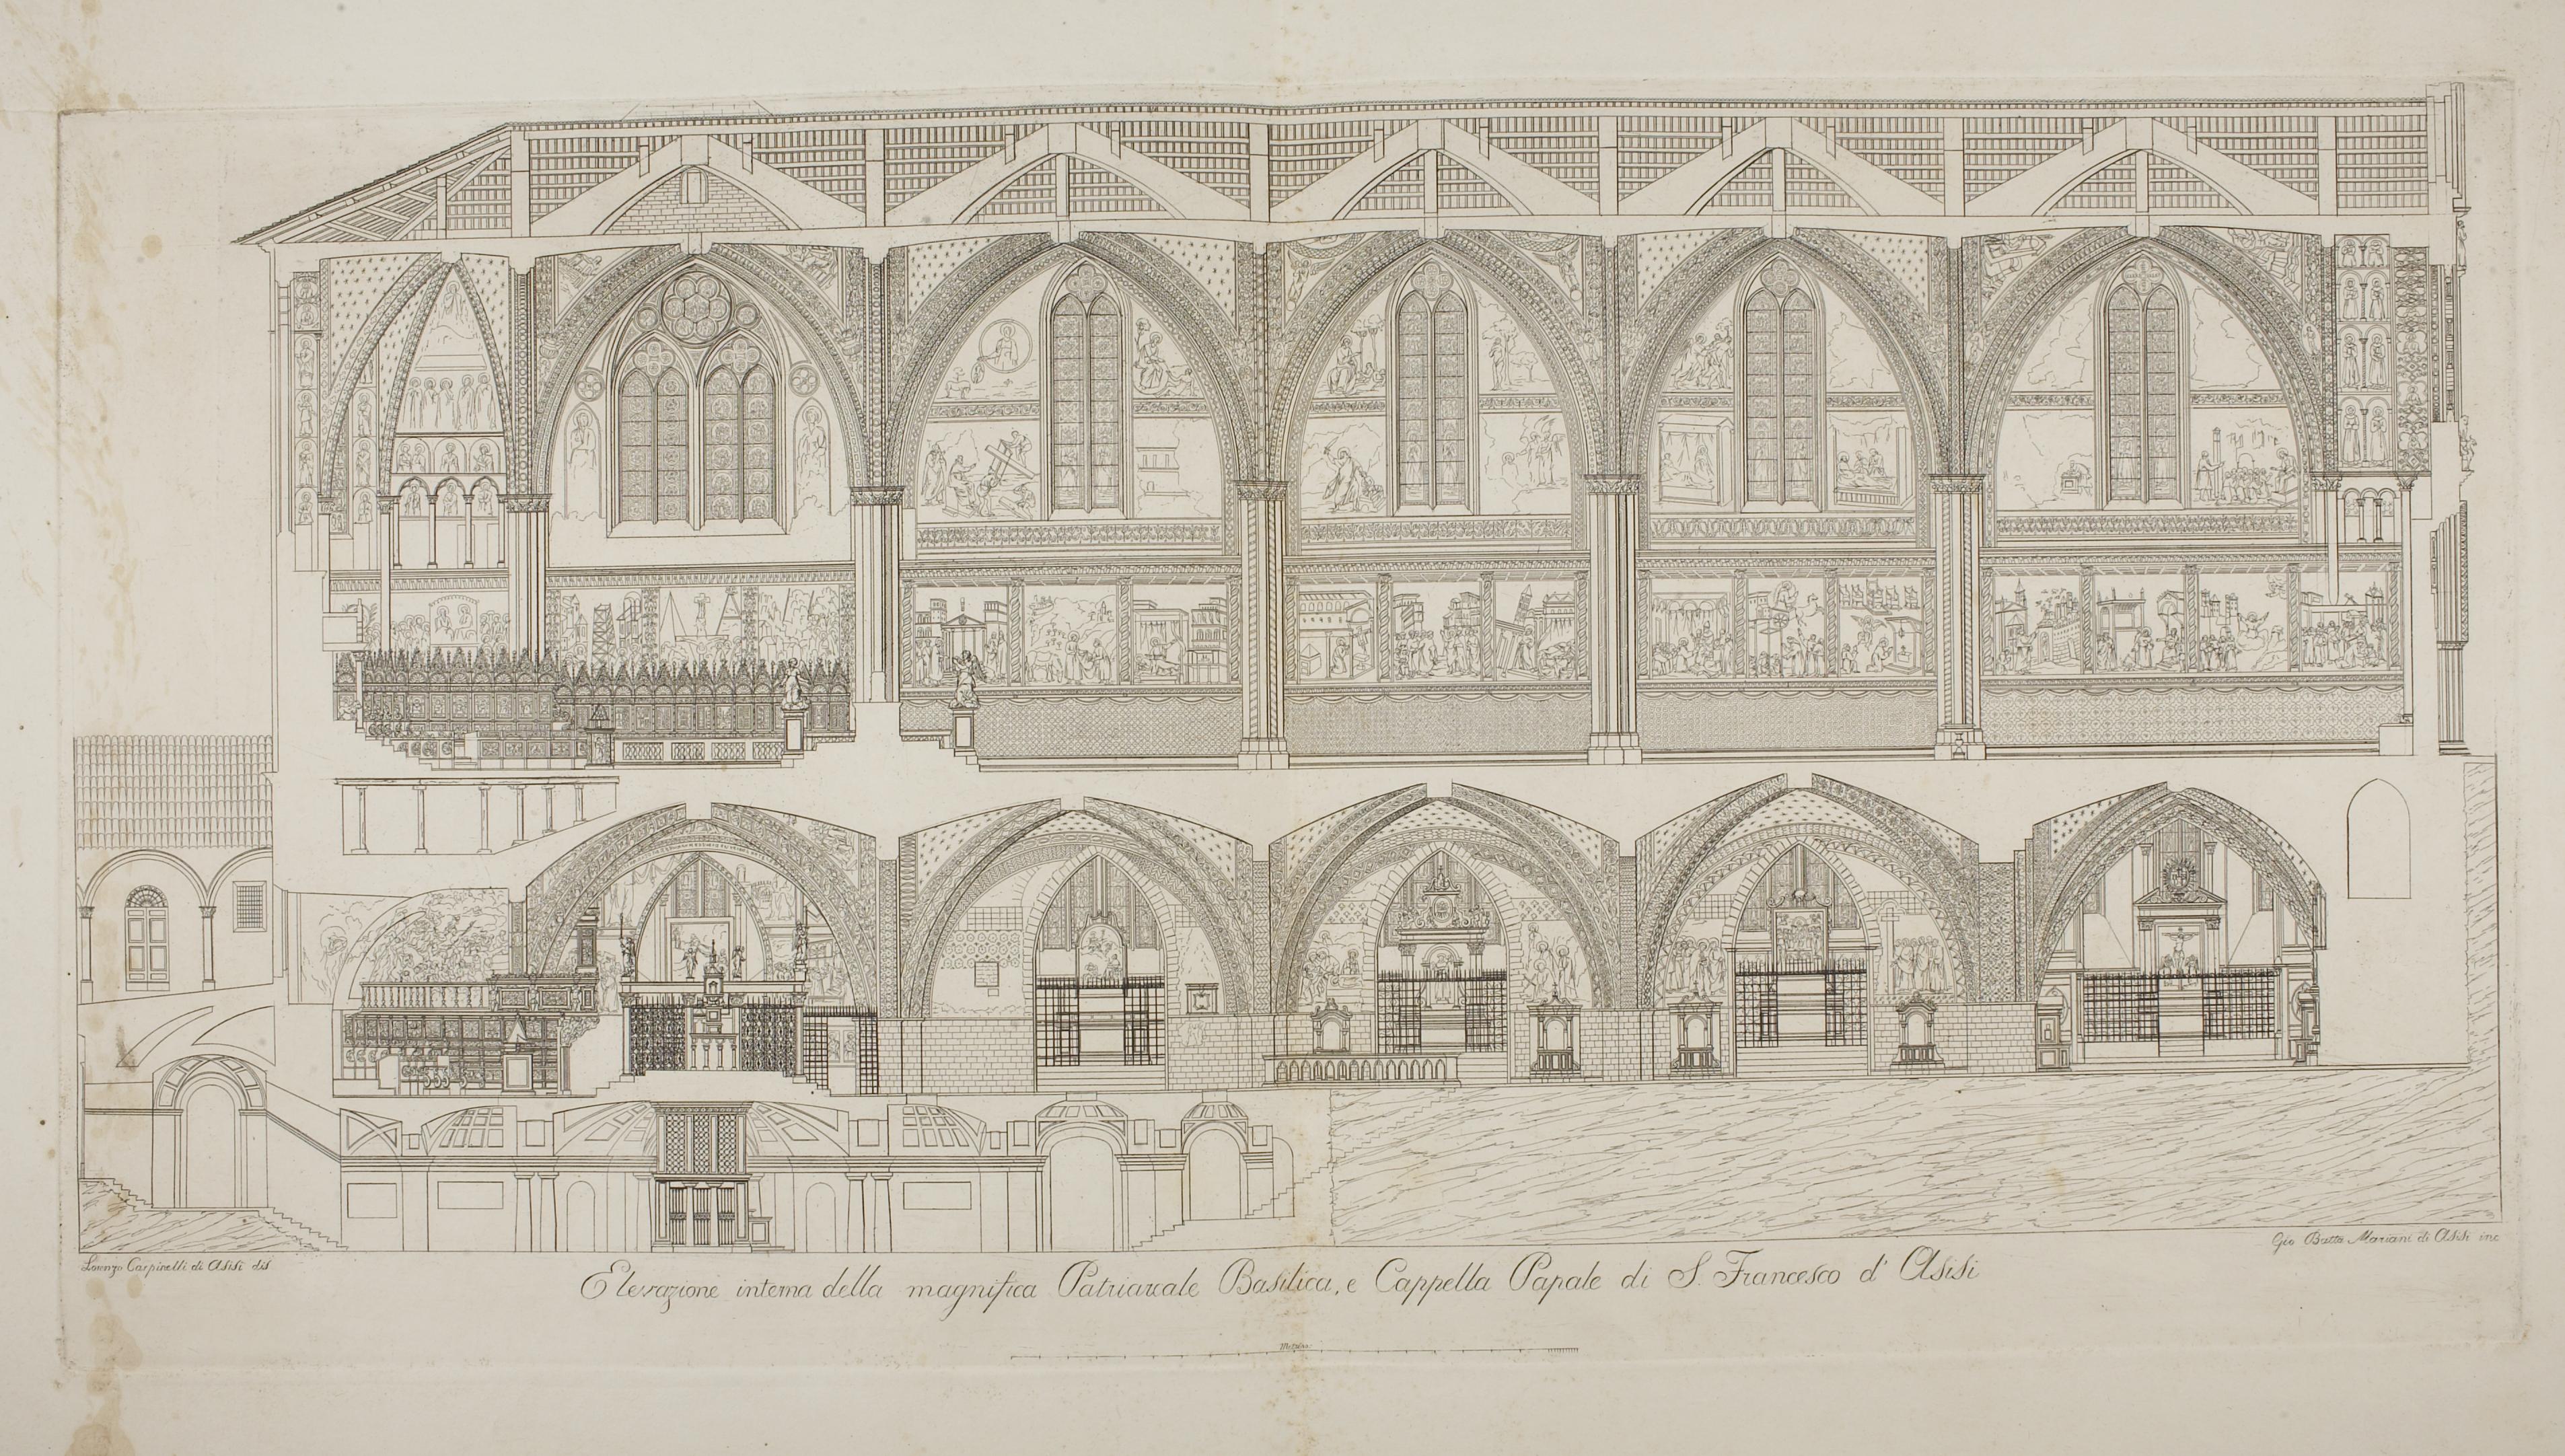 Lorenzo Carpinelli di Asisi dis
Gio Batta Mariani di Asisi inc
Elevazione interna della magnifica Patriarcale Basilica, e Cappella Papale di S. Francesco d' Asisi